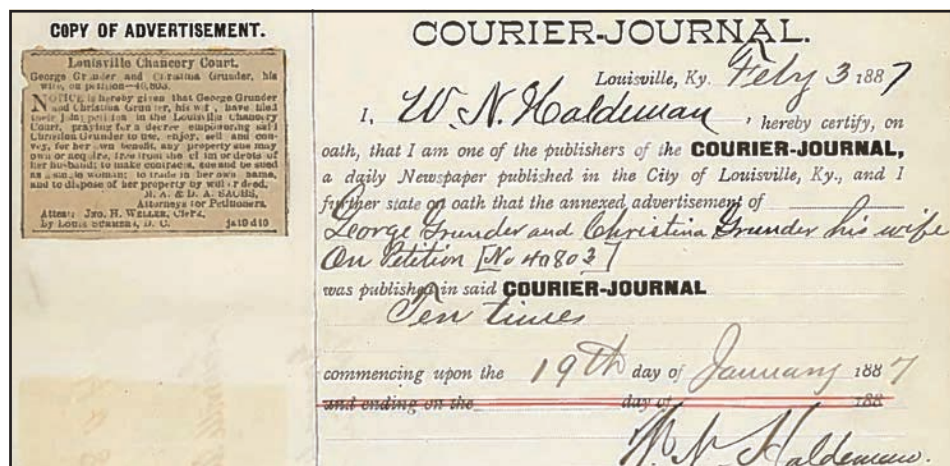 COPY OF ADVERTISEMENT.
Louisville Chancery Court.
George Grunder and Christina Grunder, his
wife, on petition—40,803.
NOTICE is hereby given that George Grunder
and Christina Grunder, his wife, have filed
their joint petition in the Louisville Chancery
Court, praying for a decree empowering said
Christina Grunder to use, enjoy, sell and con-
vey, for her own benefit, any property she may
own or acquire, free from the claim or debts of
her husband; to make contracts, sue and be sued
as a single woman; to trade in her own name,
and to dispose of her property by will or deed.
M. A. & D. A. SACHS,
Attorneys for Petitioners.
Attest: JNO. H. WELLER, Clerk,
by LOUIS SUMMERS, D. C. ja19d10
COURIER-JOURNAL.
Louisville, Ky. Feby 3 1887
I, W. N. Haldeman, hereby certify, on
oath, that I am one of the publishers of the COURIER-JOURNAL,
a daily Newspaper published in the City of Louisville, Ky., and I
further state on oath that the annexed advertisement of
George Grunder and Christina Grunder his wife
On Petition [No 40803]
was published in said COURIER-JOURNAL
Ten times
commencing upon the 19th day of January 1887
and ending on the day of 188
W. N. Haldeman.